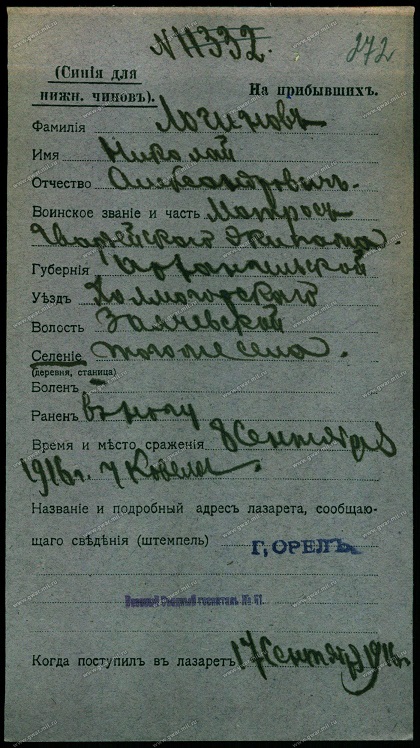 N 11332.
272
(Синія для
нижн. чиновъ).
На прибывшихъ.
Фамилія Логиновъ
Имя Николай
Отчество Александровичъ
Воинское званіе и часть Матросъ
Гвардейского Экипажа.
Губернія Архангельской
Уѣздъ Холмогорского
Волость Зачаевской
Селеніе того же села.
(деревня, станица)
Боленъ —
Раненъ въ ногу
Время и мѣсто сраженія 8 Сентября
1916 г. у Ковеля
Названіе и подробный адресъ лазарета, сообщаю-
щаго свѣдѣнія (штемпель)
Г. ОРЕЛЪ
Военный госпиталь №
Когда поступилъ въ лазаретъ 17 Сентября 1916 г.